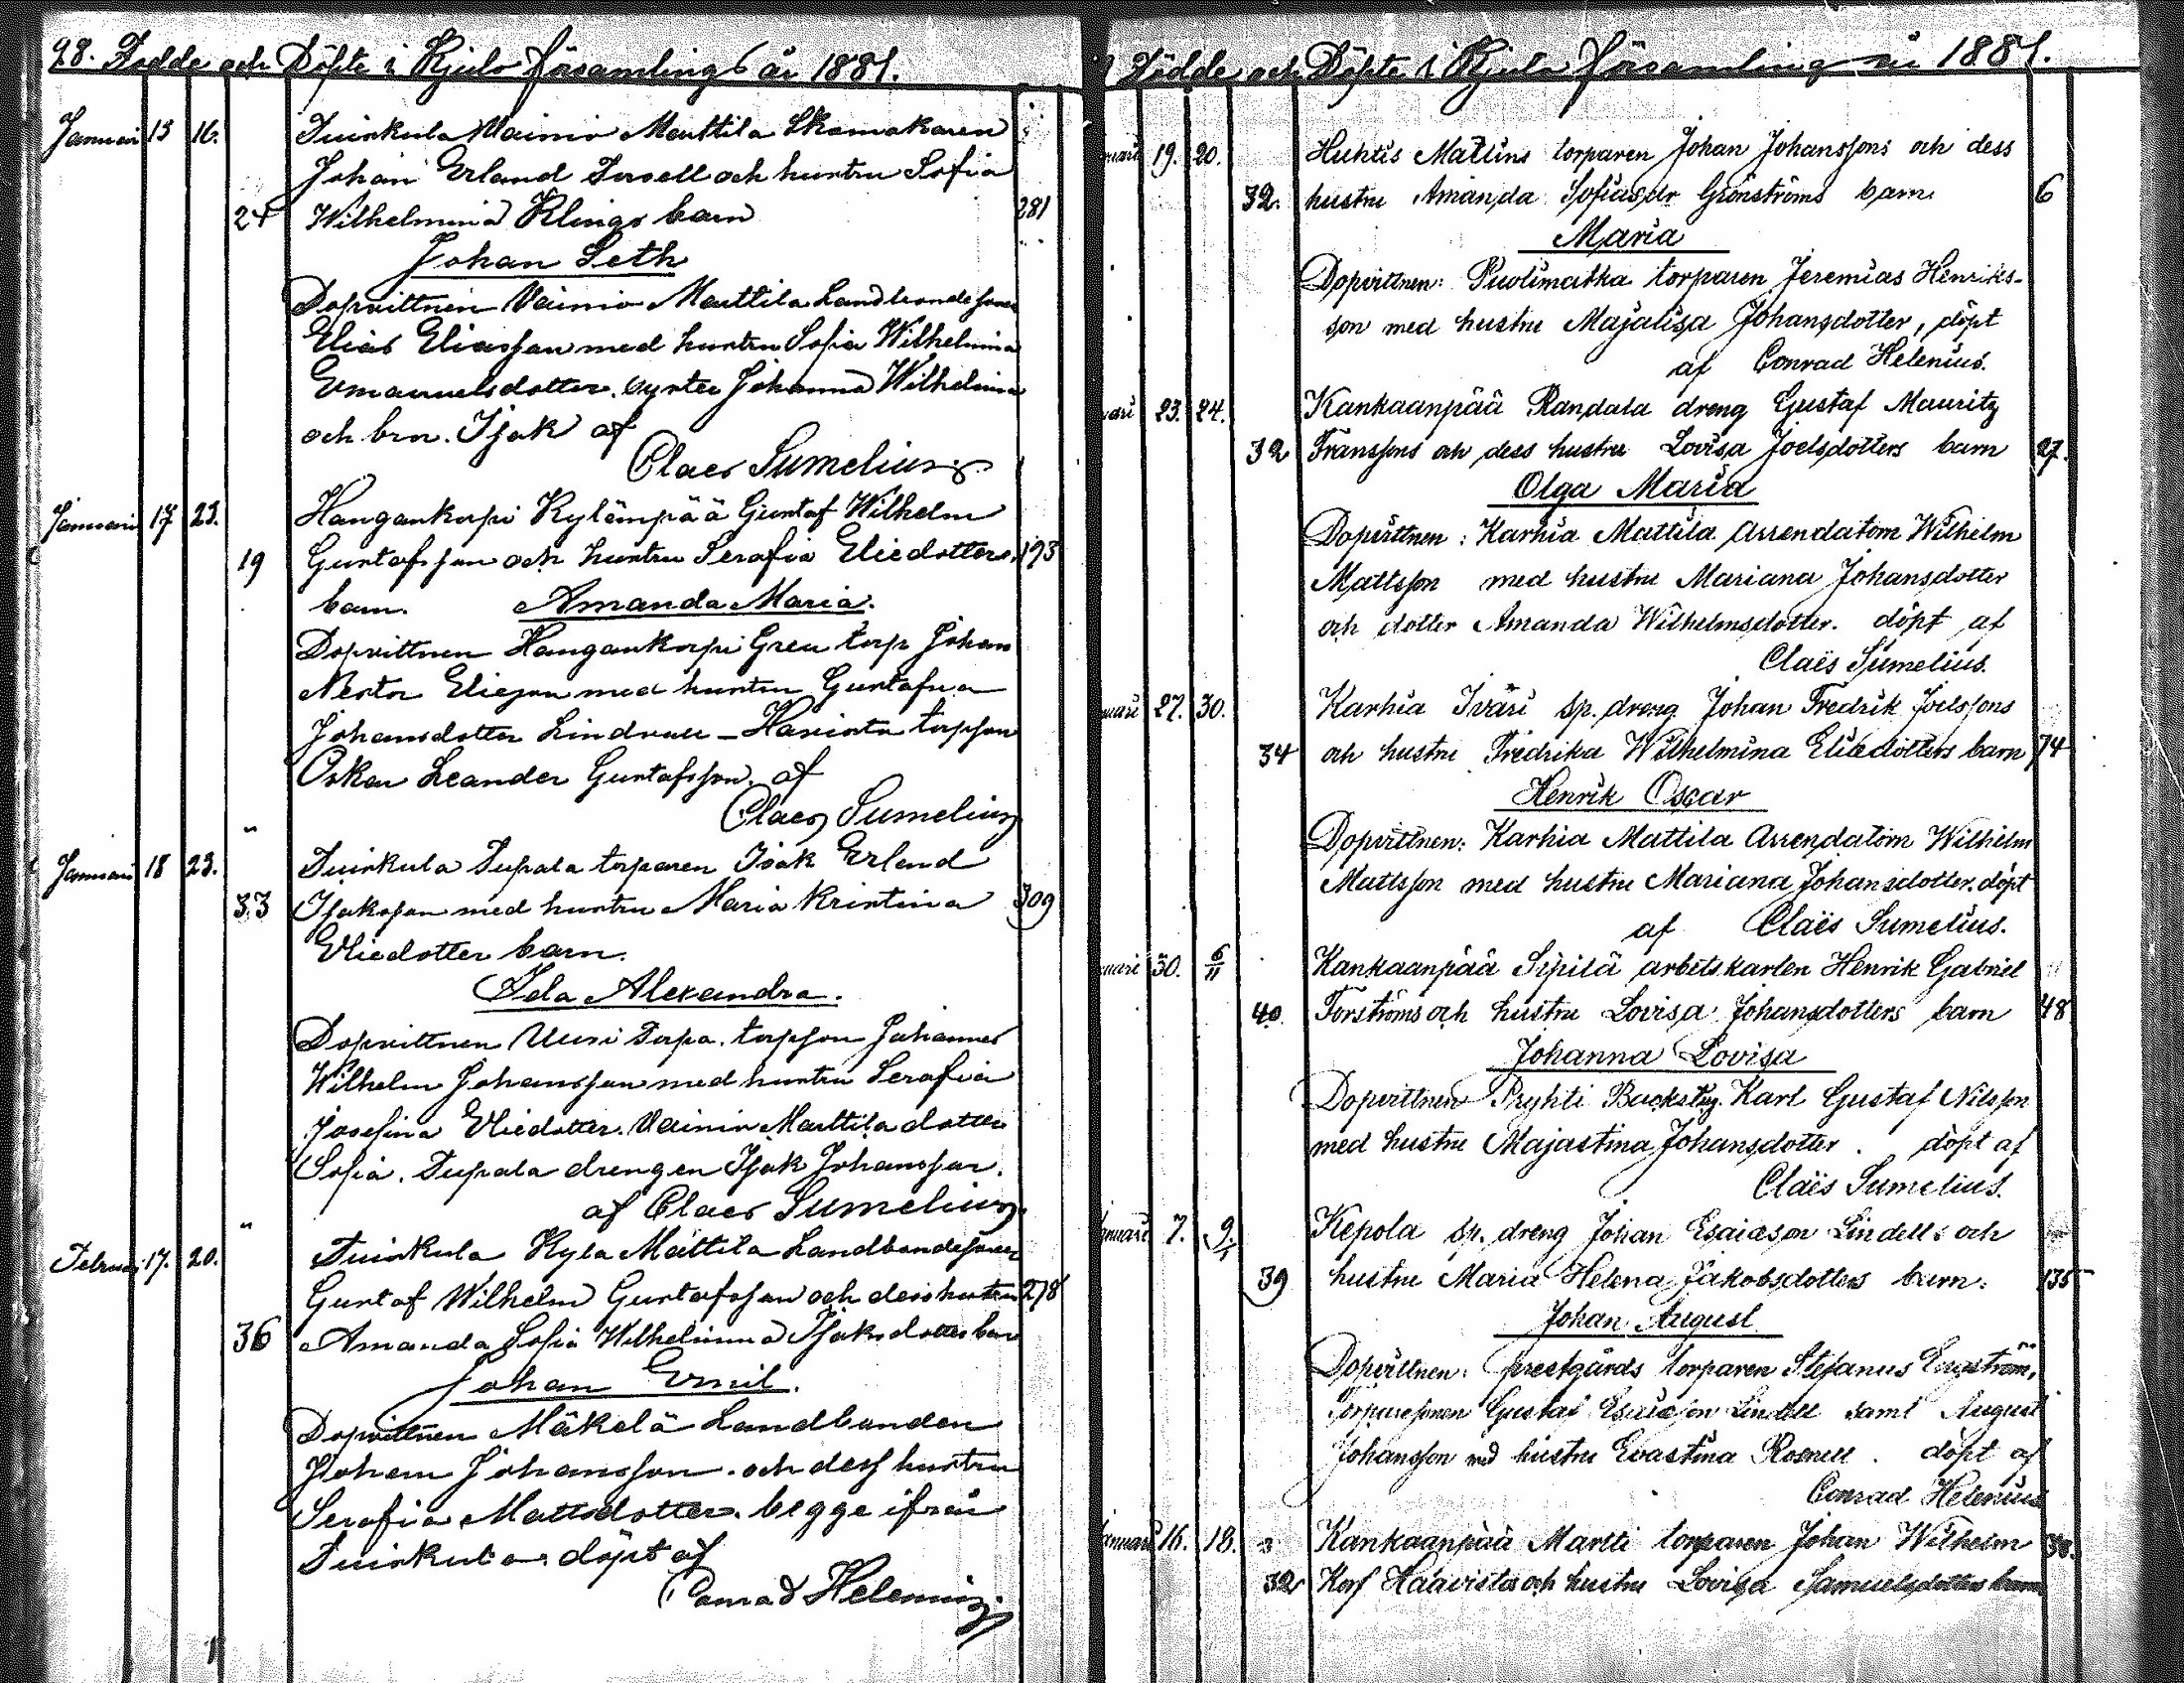 98. Födde och Döpte i Kjulo församling år 1881.
Januari 15 16. Tuiskula Vainio Marttila Skomakaren
Johan Erland Tersell och hustru Sofia
24 Wilhelmina Klings barn 281
Johan Seth
Dopvittnen Vainio Marttila Landbondesonen
Elias Eliasson med hustru Sofia Wilhelmina
Emanuelsdotter. syster Johanna Wilhelmina
och bror. Isak af
Claes Sumelius.
Januari 17 23. Hangankorpi Kylänpää Gustaf Wilhelm
19 Gustafsson och hustru Serafia Eliedotters 193
barn. Amanda Maria.
Dopvittnen Hangankorpi Greu torp Johan
Nestor Elieson med hustru Gustafva
Johansdotter Lindvall - Haviosta torpson
Oskar Leander Gustafsson. af
Claes Sumelius
Januari 18 23. Tuiskula Tupala torparen Isak Erland
33 Isaksson med hustru Maria Kristina 309
Eliedotter barn.
Ida Alexandra.
Dopvittnen Uusi Torpa. torpson Johannes
Wilhelm Johansson med hustru Serafia
Josefina Eliedotter. Vainio Marttila dotter
Sofia. Tupala drengen Isak Johansson.
af Claes Sumelius.
Februari 17. 20. Tuiskula Kyla Mattila Landbondesonen
Gustaf Wilhelm Gustafsson och dess hustru 278
36 Amanda Sofia Wilhelmina Isaksdotter barn
Johan Emil.
Dopvittnen Mäkelä Landbonden
Johan Johansson. och dess hustru
Serafia Mattsdotter. begge ifrån
Tuiskula. döpt af
Conrad Helenius.
Födde och Döpte i Kjulo församling år 1881.
uari 19. 20. Huhtis Matlins torparen Johan Johanssons och dess
32. hustru Amanda Sofiasdr Grönströms barn. 6
Maria
Dopvittnen: Puolimatka torparen Jeremias Henriks-
son med hustru Majalisa Johansdotter, döpt
af Conrad Helenius.
uari 23. 24. Kankaanpää Randala dreng Gustaf Mauritz
32 Franssons och dess hustru Lovisa Joelsdotters barn 27.
Olga Maria
Dopvittnen: Karhia Mattila Arrendatorn Wilhelm
Mattsson med hustru Mariana Johansdotter
och dotter Amanda Wilhelmsdotter. döpt af
Claës Sumelius.
uari 27. 30. Karhia Iväri sp. dreng Johan Fredrik Joelssons
34 och hustru Fredrika Wilhelmina Eliedotters barn 74
Henrik Oscar
Dopvittnen: Karhia Mattila Arrendatorn Wilhelm
Mattsson med hustru Mariana Johansdotter. döpt
af Claës Sumelius.
uari 30. 6/11 Kankaanpää Sipilä arbetskarlen Henrik Gabriel
40. Forströms och hustru Lovisa Johansdotters barn 48
Johanna Lovisa
Dopvittnen Pryhti Backstug. Karl Gustaf Nilsson
med hustru Majastina Johansdotter. döpt af
Claës Sumelius.
nuari 7. 9. Kepola sp. dreng Johan Esaiasson Lindells och
39 hustru Maria Helena Jakobsdotters barn. 135
Johan August
Dopvittnen: prestgårds torparen Stefanus Engström,
Torparesonen Gustaf Esaiasson Lindell samt August
Johansson med hustru Evastina Rosnell. döpt af
Conrad Helenius
anuari 16. 18. Kankaanpää Martti torparen Johan Wilhelm 38.
32 Korf Haavistos och hustru Lovisa Samuelsdotters barn